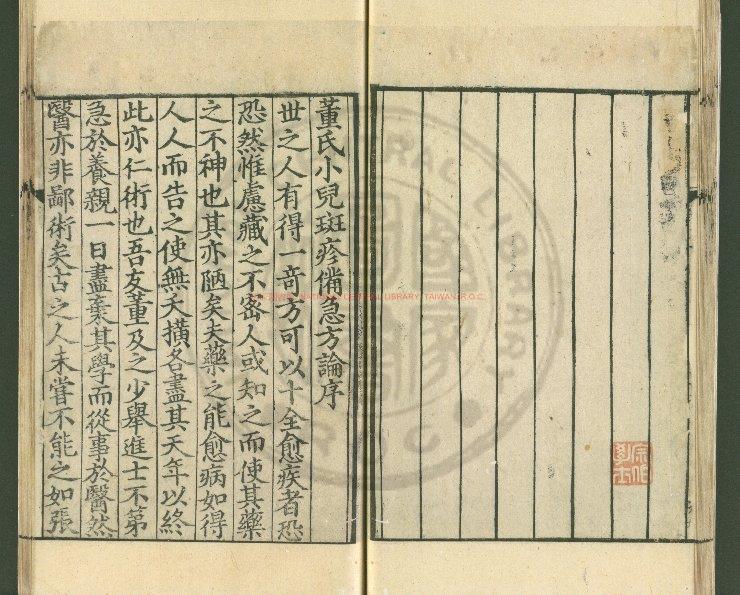 董氏小兒斑疹備急方論序
世之人有得一奇方可以十全愈疾者恐
恐然惟慮藏之不密人或知之而使其藥
之不神也其亦陋矣夫藥之能愈病如得
人人而告之使無夭橫各盡其天年以終
此亦仁術也吾友董及之少舉進士不第
急於養親一日盡棄其學而從事於醫然
醫亦非鄙術矣古之人未嘗不能之如張
NATIONAL CENTRAL LIBRARY, TAIWAN (R.O.C.)